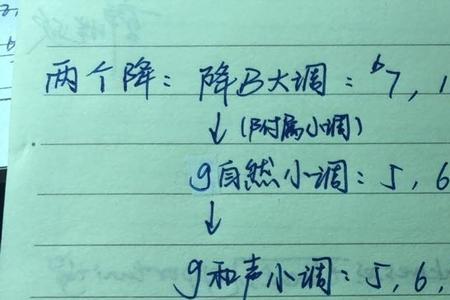 两个降：降B大调：♭7，1
↓(附属小调)
g自然小调：5，6
↓
g和声小调：5，6，